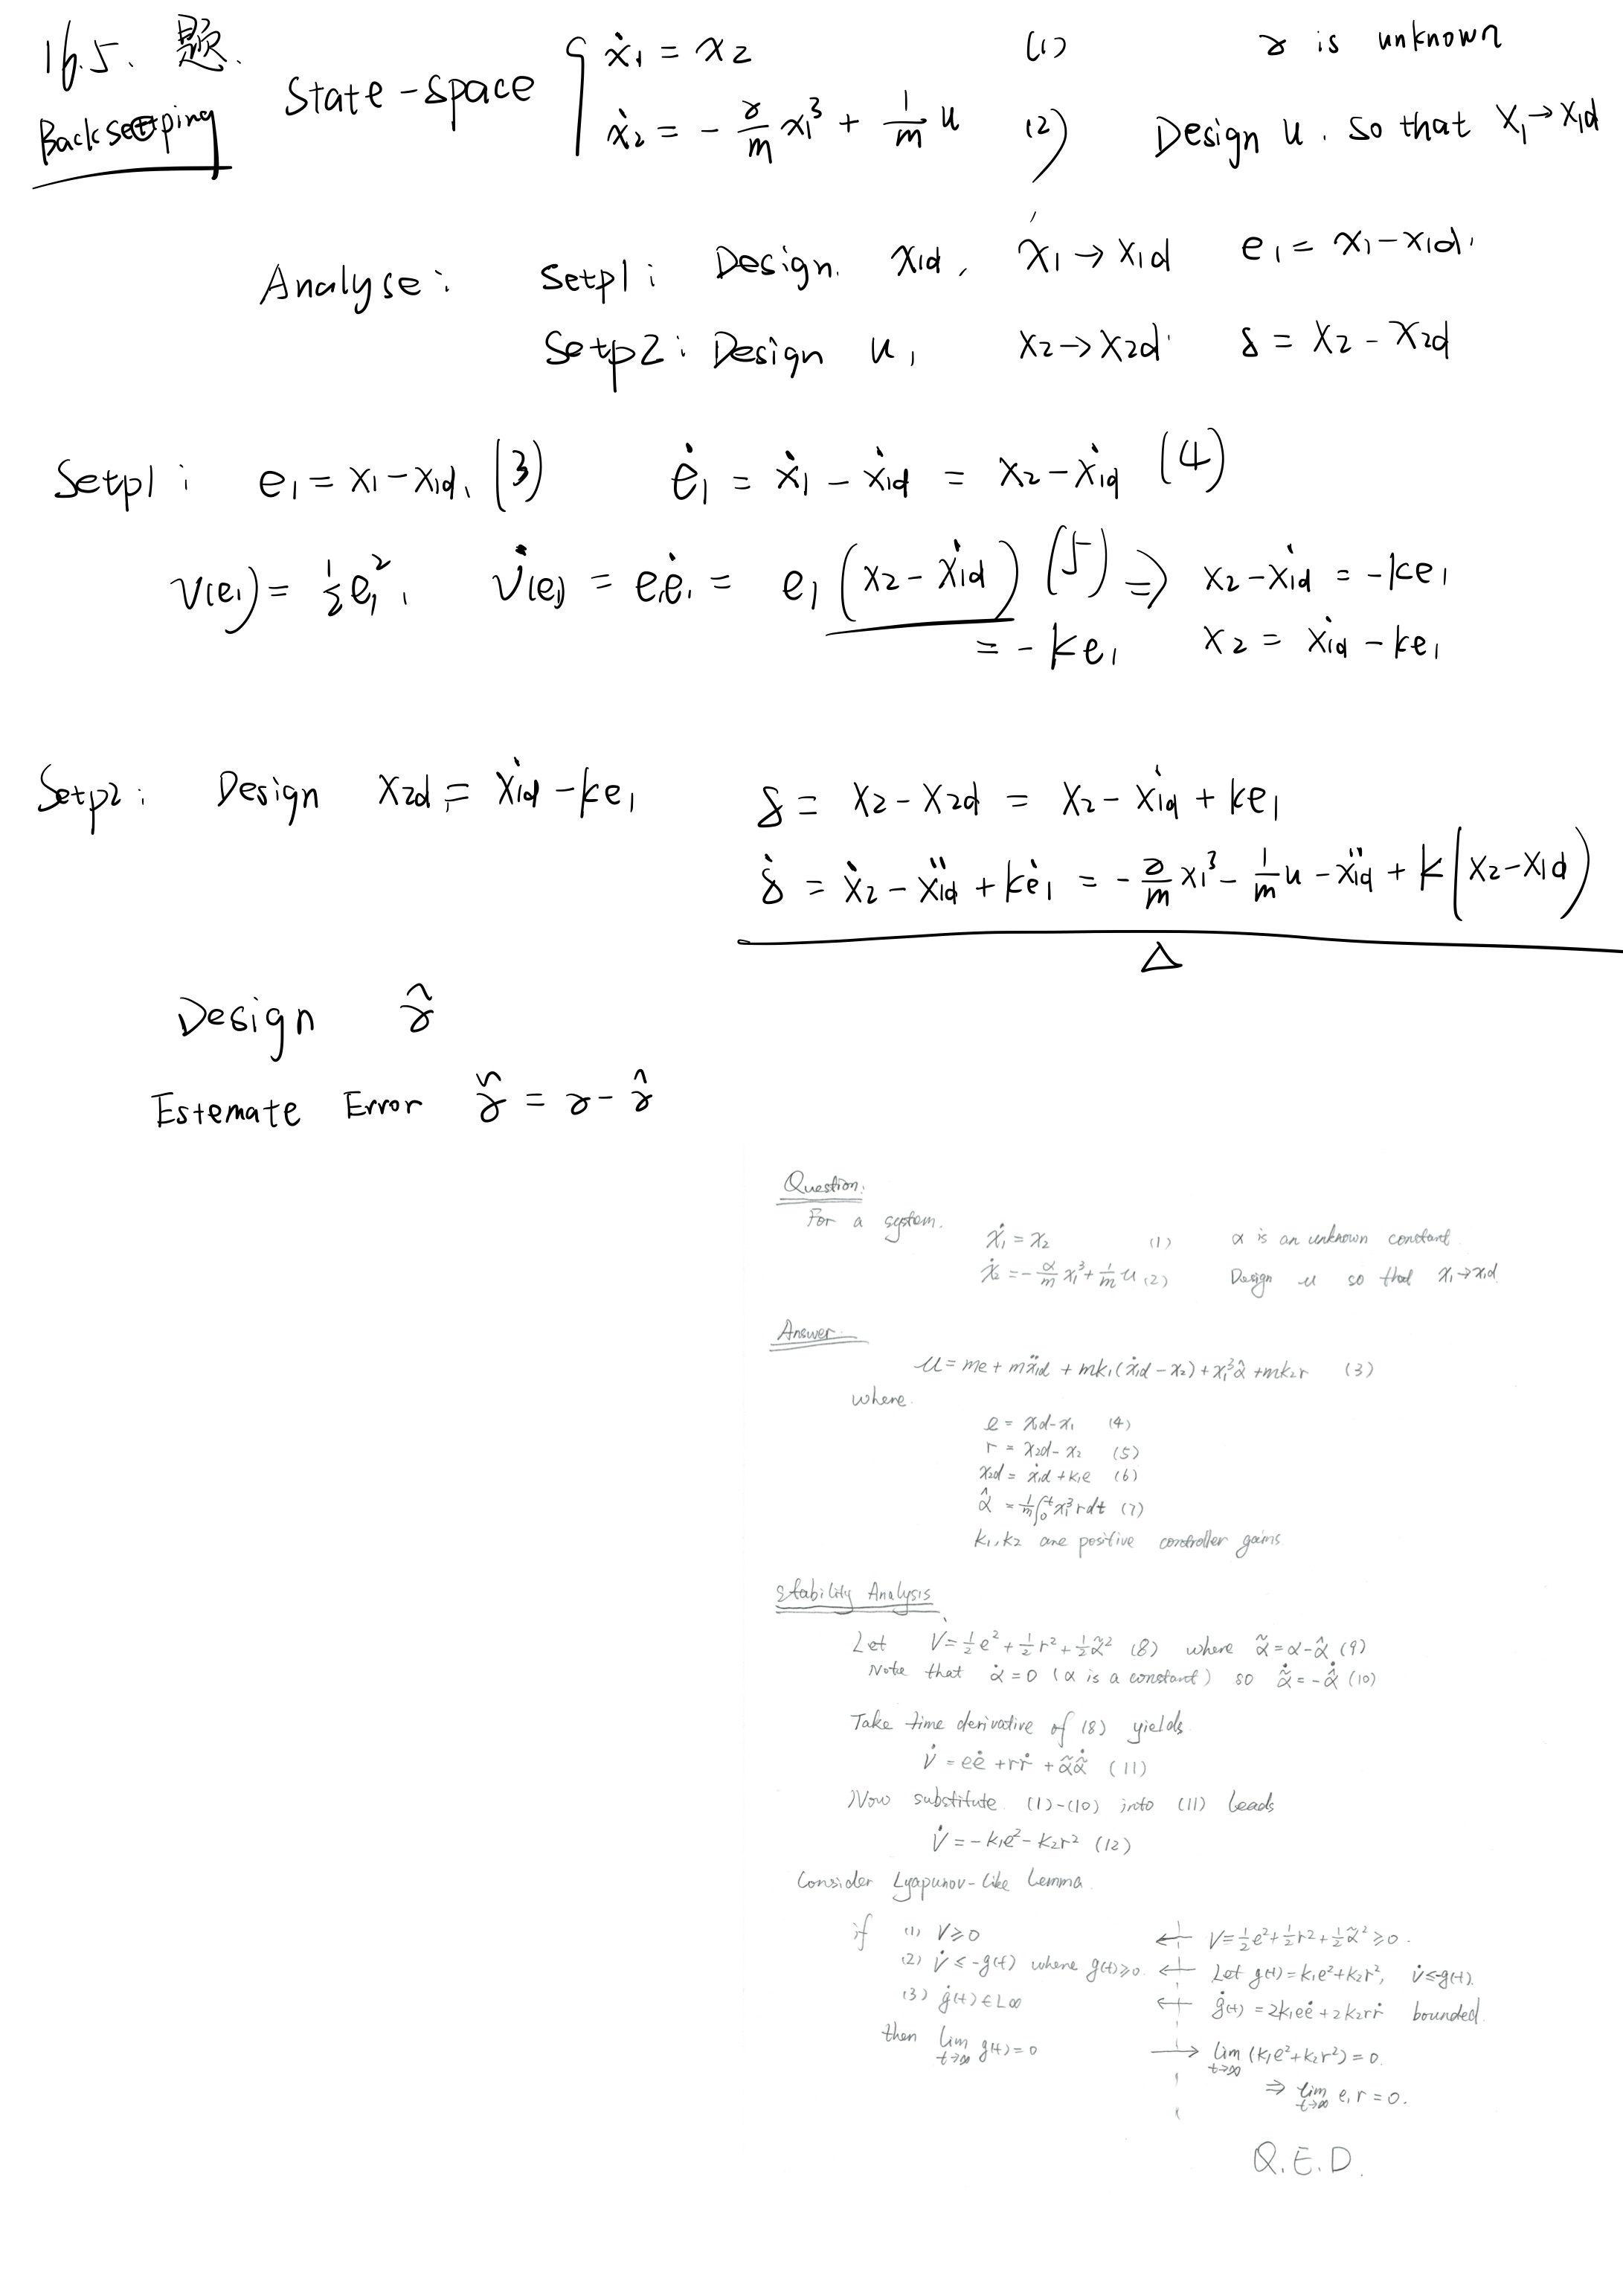 16.5、题.
Backsetping
State-space { ẋ₁ = x₂ (1) γ is unknown
ẋ₂ = - γ/m x₁³ + 1/m u (2) Design u. so that x₁→x₁d
Analyse: Setp1: Design. x₁d, x₁→x₁d e₁ = x₁-x₁d.
Setp2: Design u, x₂→x₂d. δ = x₂-x₂d
Setp1: e₁ = x₁-x₁d. (3) ė₁ = ẋ₁ - ẋ₁d = x₂-ẋ₁d (4)
V(e₁) = ½e₁², V̇(e₁) = e₁ė₁ = e₁(x₂-ẋ₁d) (5) ⇒ x₂-ẋ₁d = -ke₁
= -ke₁ x₂ = ẋ₁d - ke₁
Setp2: Design x₂d = ẋ₁d -ke₁ δ = x₂-x₂d = x₂-ẋ₁d + ke₁
δ̇ = ẋ₂ - ẍ₁d + kė₁ = - γ/m x₁³ - 1/m u - ẍ₁d + k(x₂-x₁d)
△
Design γ̂
Estemate Error γ̃ = γ-γ̂
Question:
For a system. ẋ₁ = x₂ (1) α is an unknown constant
ẋ₂ = - α/m x₁³ + 1/m u (2) Design u so that x₁→x₁d
Answer.
u = me + mẍ₁d + mk₁(ẋ₁d - x₂) + x₁³α̂ + mk₂r (3)
where.
e = x₁d-x₁ (4)
r = x₂d-x₂ (5)
x₂d = ẋ₁d + k₁e (6)
α̂ = 1/m ∫₀ᵗ x₁³ r dt (7)
k₁, k₂ are positive controller gains.
Stability Analysis
Let V = ½e² + ½r² + ½α̃² (8) where α̃ = α-α̂ (9)
Note that α̇ = 0 (α is a constant) so α̃̇ = -α̂̇ (10)
Take time derivative of (8) yields
V̇ = eė + rṙ + α̃α̃̇ (11)
Now substitute (1)-(10) into (11) leads
V̇ = -k₁e² - k₂r² (12)
Consider Lyapunov-like Lemma.
if (1) V≥0 ← V = ½e² + ½r² + ½α̃² ≥ 0.
(2) V̇ ≤ -g(t) where g(t)≥0 ← Let g(t) = k₁e²+k₂r², V̇≤-g(t).
(3) ġ(t)∈L∞ ← ġ(t) = 2k₁eė + 2k₂rṙ bounded.
then lim t→∞ g(t) = 0 → lim t→∞ (k₁e²+k₂r²) = 0.
⇒ lim t→∞ e, r = 0.
Q.E.D.